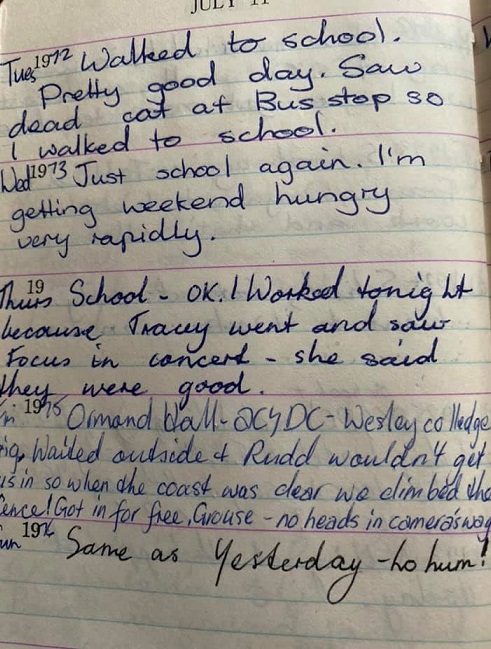 JULY 11
Tues 1972 Walked to school.
Pretty good day. Saw
dead cat at Bus stop so
I walked to school.
Wed 1973 Just school again. I'm
getting weekend hungry
very rapidly.
Thurs 19 School - OK. I Worked tonight
because Tracey went and saw
Focus in concert - she said
they were good.
Fri 1975 Ormand Hall - ACϟDC - Wesley college
gig, Waited outside & Rudd wouldn't get
us in so when the coast was clear we climbed the
fence! Got in for free, Grouse - no heads in camera's way
Sun 1976 Same as Yesterday - ho hum!